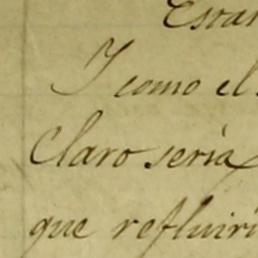 Estan
Y como el
Claro sería
que refluiri